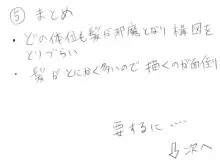 ⑤ まとめ
・どの体位も髪が邪魔となり構図を
とりづらい
・髪がとにかく多いので描くのが面倒
要するに‥‥
⇩次へ